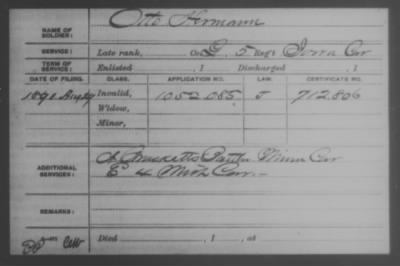 Otto Hermann
NAME OF SOLDIER:
SERVICE: Late rank, Co. L, 5 Reg't Iowa Cav
TERM OF SERVICE: Enlisted , 1 Discharged , 1
DATE OF FILING. CLASS. APPLICATION NO. LAW. CERTIFICATE NO.
1890 Aug Invalid, 1052085 J 712.806
Widow,
Minor,
ADDITIONAL SERVICES: Brackett's Batt'n Minn Cav
& 4 Cav.
REMARKS:
Died , 1 , at